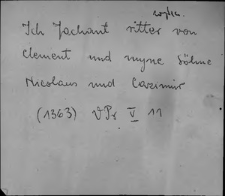 Ich Jachant ritter von
Clement und myne Söhne
Nicolaus und Casimir
(1363) VPr V 11